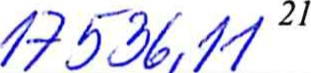 17536,11 21